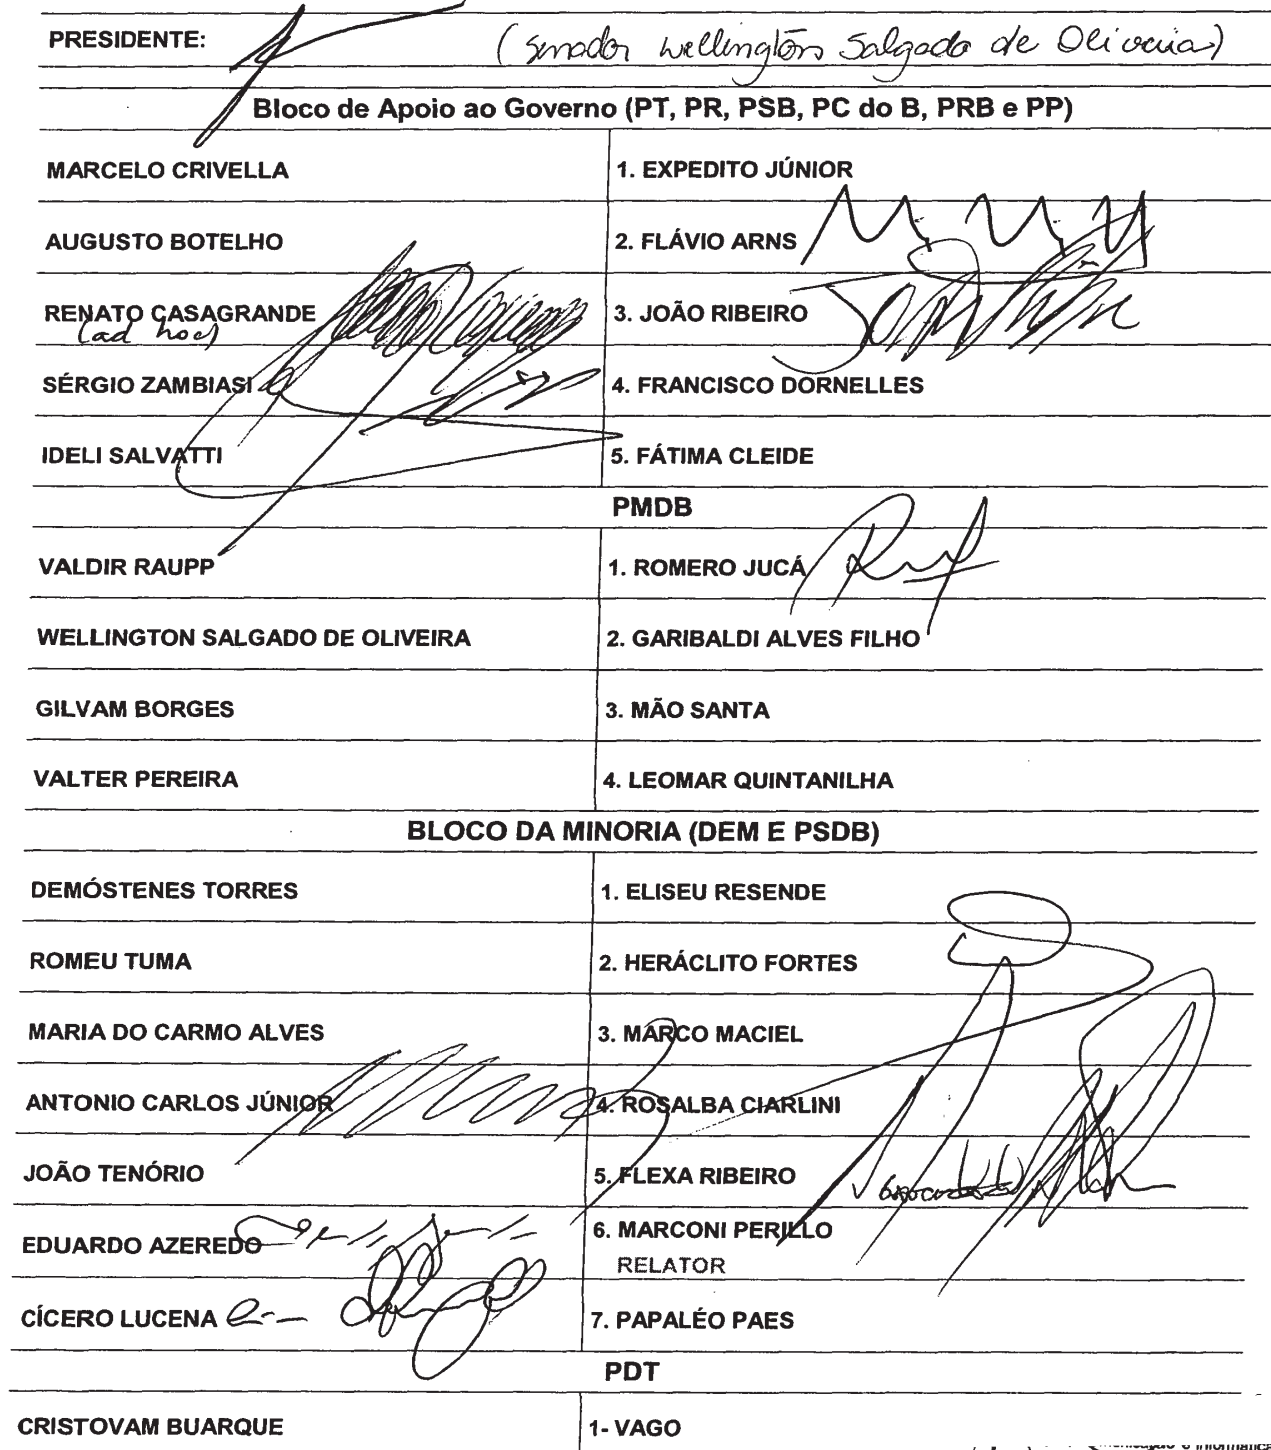 PRESIDENTE: (Senador Wellington Salgado de Oliveira)
Bloco de Apoio ao Governo (PT, PR, PSB, PC do B, PRB e PP)
MARCELO CRIVELLA 1. EXPEDITO JÚNIOR
AUGUSTO BOTELHO 2. FLÁVIO ARNS
RENATO CASAGRANDE 3. JOÃO RIBEIRO
(ad hoc)
SÉRGIO ZAMBIASI 4. FRANCISCO DORNELLES
IDELI SALVATTI 5. FÁTIMA CLEIDE
PMDB
VALDIR RAUPP 1. ROMERO JUCÁ
WELLINGTON SALGADO DE OLIVEIRA 2. GARIBALDI ALVES FILHO
GILVAM BORGES 3. MÃO SANTA
VALTER PEREIRA 4. LEOMAR QUINTANILHA
BLOCO DA MINORIA (DEM E PSDB)
DEMÓSTENES TORRES 1. ELISEU RESENDE
ROMEU TUMA 2. HERÁCLITO FORTES
MARIA DO CARMO ALVES 3. MARCO MACIEL
ANTONIO CARLOS JÚNIOR 4. ROSALBA CIARLINI
JOÃO TENÓRIO 5. FLEXA RIBEIRO
EDUARDO AZEREDO 6. MARCONI PERILLO
RELATOR
CÍCERO LUCENA 7. PAPALÉO PAES
PDT
CRISTOVAM BUARQUE 1- VAGO